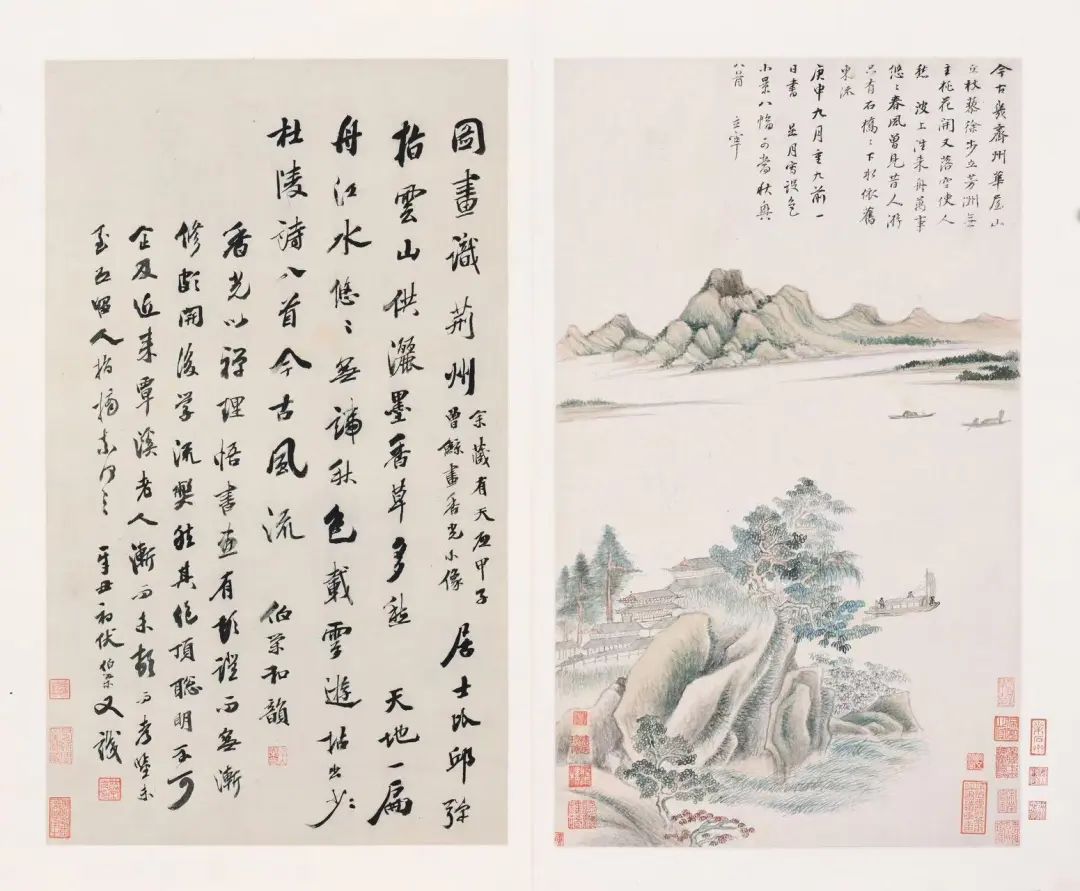 今古幾齊州華屋山
丘杖藜徐步立芳洲無
主桃花開又落空使人
愁 波上往來舟萬事
悠〻春風曾見昔人游
只有石橋〻下水依舊
東流
庚申九月重九前一
日書 是月寫設色
小景八幅可當秋興
八首 玄宰
圖畫識荊州 余藏有天啟甲子
曾鯨畫香光小像 居士比邱彈
指雲山供灑墨香草多愁 天地一扁
舟江水悠〻無端秋色載雲遊拈出少
杜陵詩八首今古風流 伯榮和韻
香光以禪理悟書畫有頓證而無漸
修頗開後學流弊然其絕頂聰明不可
企及近來覃溪老人漸而未頓而考
人指摘 辛丑初伏伯榮又識